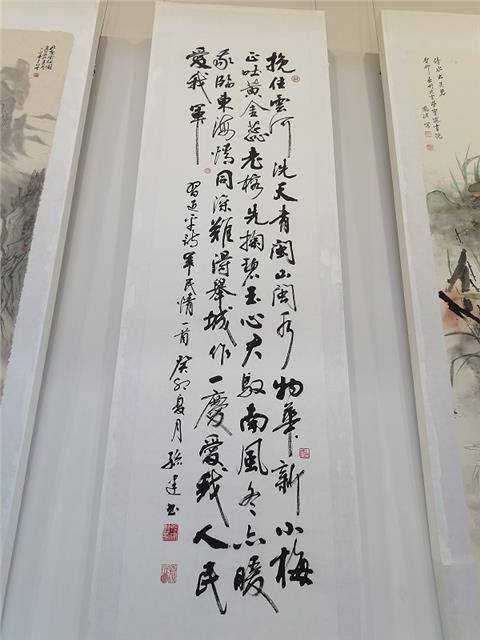 挽住雲河洗天青閩山閩水物華新小梅
正吐黄金蕊老榕先掬碧玉心君馭南風冬亦暖
我臨東海情同深難得舉城作一慶愛我人民
愛我軍
習近平詩軍民情一首癸卯夏月書